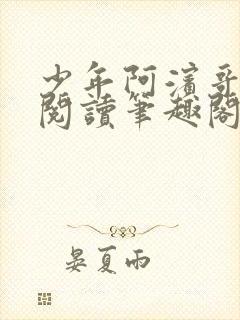 少年阿濱哥
閱讀筆趣閣
晏夏雨